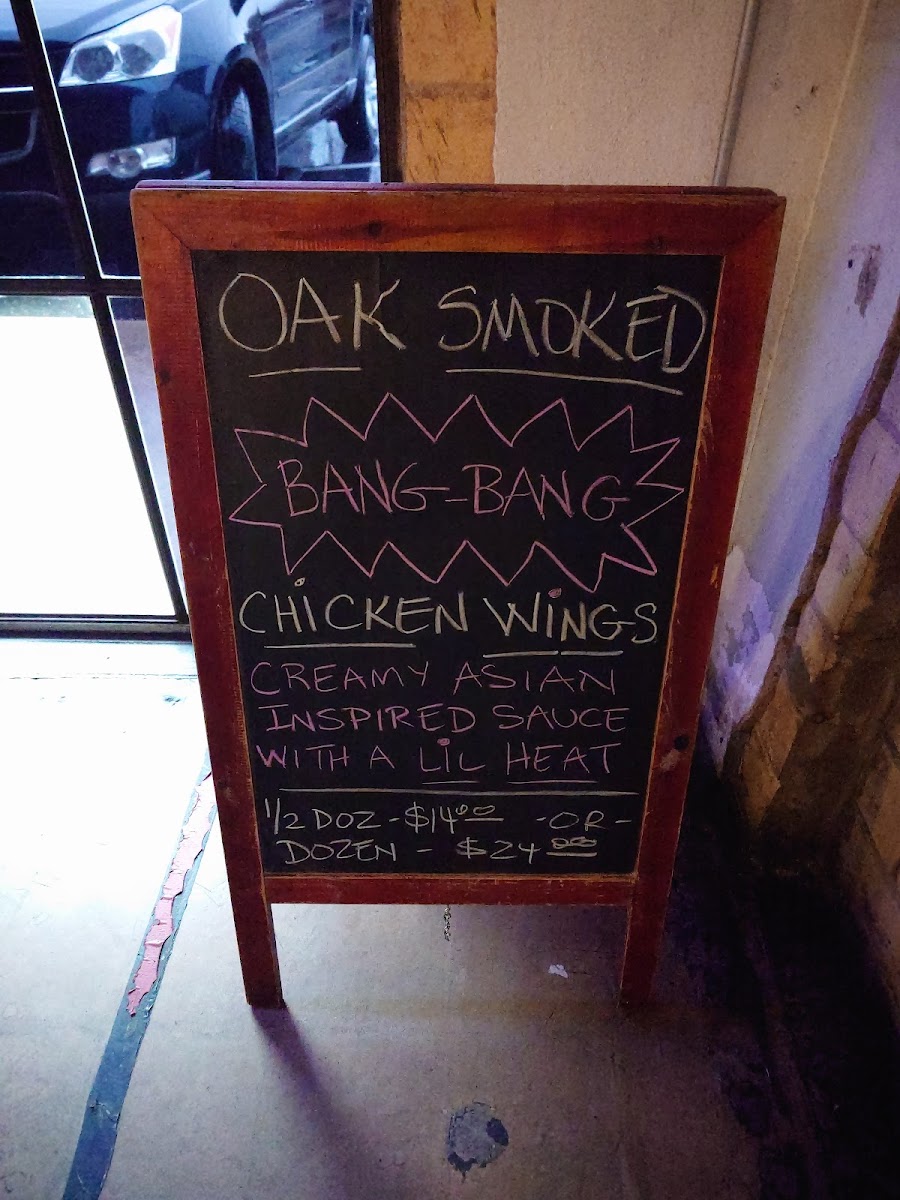 OAK SMOKED
BANG-BANG
CHICKEN WINGS
CREAMY ASIAN
INSPIRED SAUCE
WITH A LIL HEAT
1/2 DOZ - $14.00 -OR-
DOZEN - $24.00